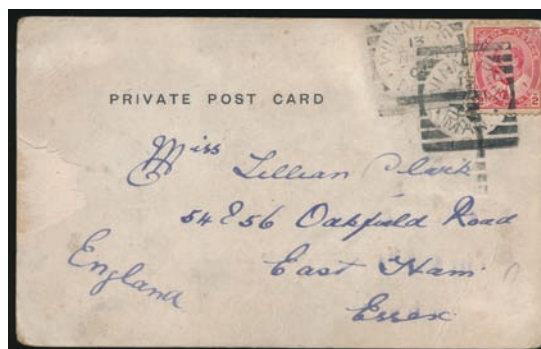 WINNIPEG
13
PRIVATE POST CARD
2
Miss Lillian Clark
54 & 56 Oakfield Road
East Ham
Essex
England